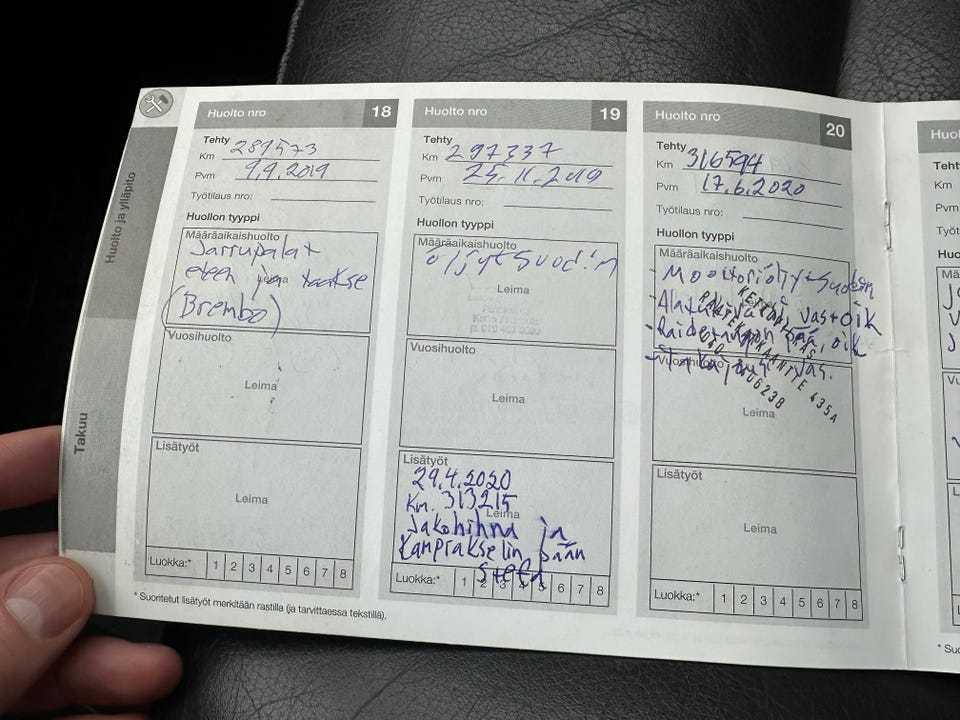 Huolto ja ylläpito
Takuu
Huolto nro 18
Tehty
Km 289573
Pvm 9.9.2019
Työtilaus nro:
Huollon tyyppi
Määräaikaishuolto
Jarrupalat
eteen ja taakse
Leima
(Brembo)
Vuosihuolto
Leima
Lisätyöt
Leima
Luokka:* 1 2 3 4 5 6 7 8
* Suoritetut lisätyöt merkitään rastilla (ja tarvittaessa tekstillä).
Huolto nro 19
Tehty
Km 297337
Pvm 25.11.2019
Työtilaus nro:
Huollon tyyppi
Määräaikaishuolto
öljyt suod.
Leima
Vuosihuolto
Leima
Lisätyöt
29.4.2020
Km. 313215
Leima
Jakohihna ja
kamprakselin pään
Luokka:* 1 2 3 4 5 6 7 8
Huolto nro 20
Tehty
Km 316594
Pvm 17.6.2020
Työtilaus nro:
Huollon tyyppi
Määräaikaishuolto
- Moottoriöljy +
vas + oik
oik
vas.
435A
Vuosihuolto
Leima
Lisätyöt
Leima
Luokka:* 1 2 3 4 5 6 7 8
Km
Pvm